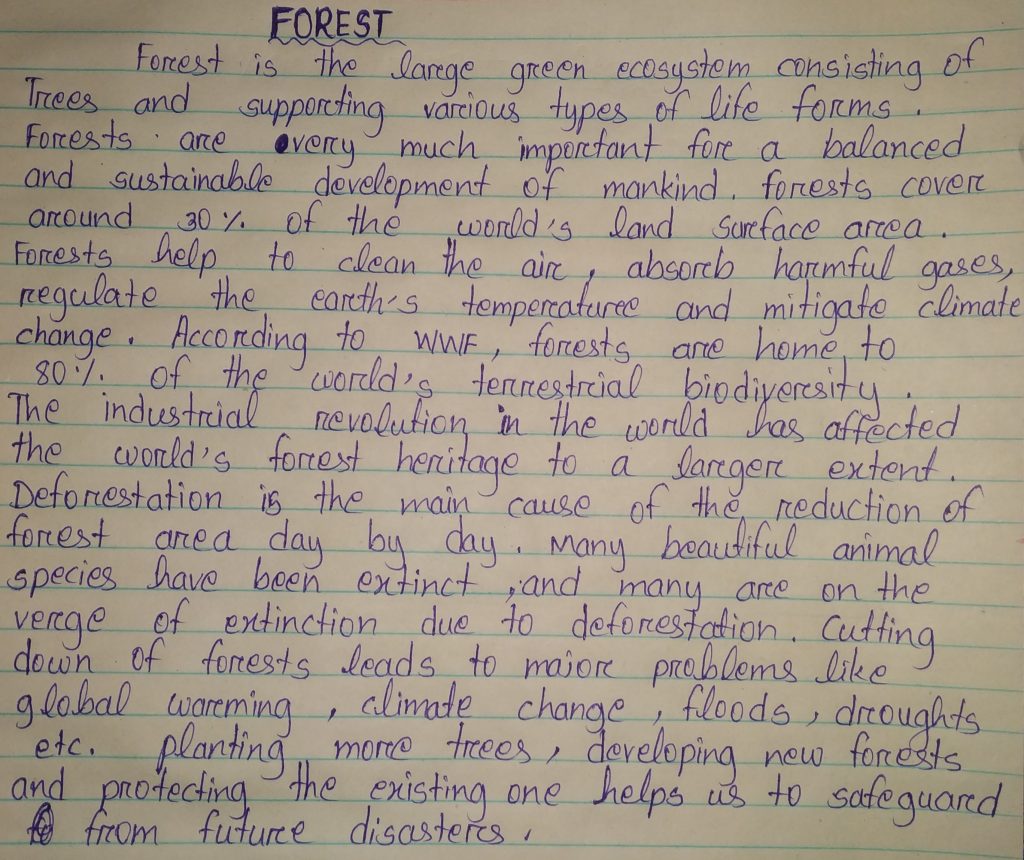 FOREST
Forest is the large green ecosystem consisting of
Trees and supporting various types of life forms.
Forests are very much important for a balanced
and sustainable development of mankind. forests cover
around 30% of the world's land surface area.
Forests help to clean the air, absorb harmful gases,
regulate the earth's temperature and mitigate climate
change. According to WWF, forests are home to
80% of the world's terrestrial biodiversity.
The industrial revolution in the world has affected
the world's forest heritage to a larger extent.
Deforestation is the main cause of the reduction of
forest area day by day. Many beautiful animal
species have been extinct, and many are on the
verge of extinction due to deforestation. Cutting
down of forests leads to major problems like
global warming, climate change, floods, droughts
etc. planting more trees, developing new forests
and protecting the existing one helps us to safeguard
from future disasters.